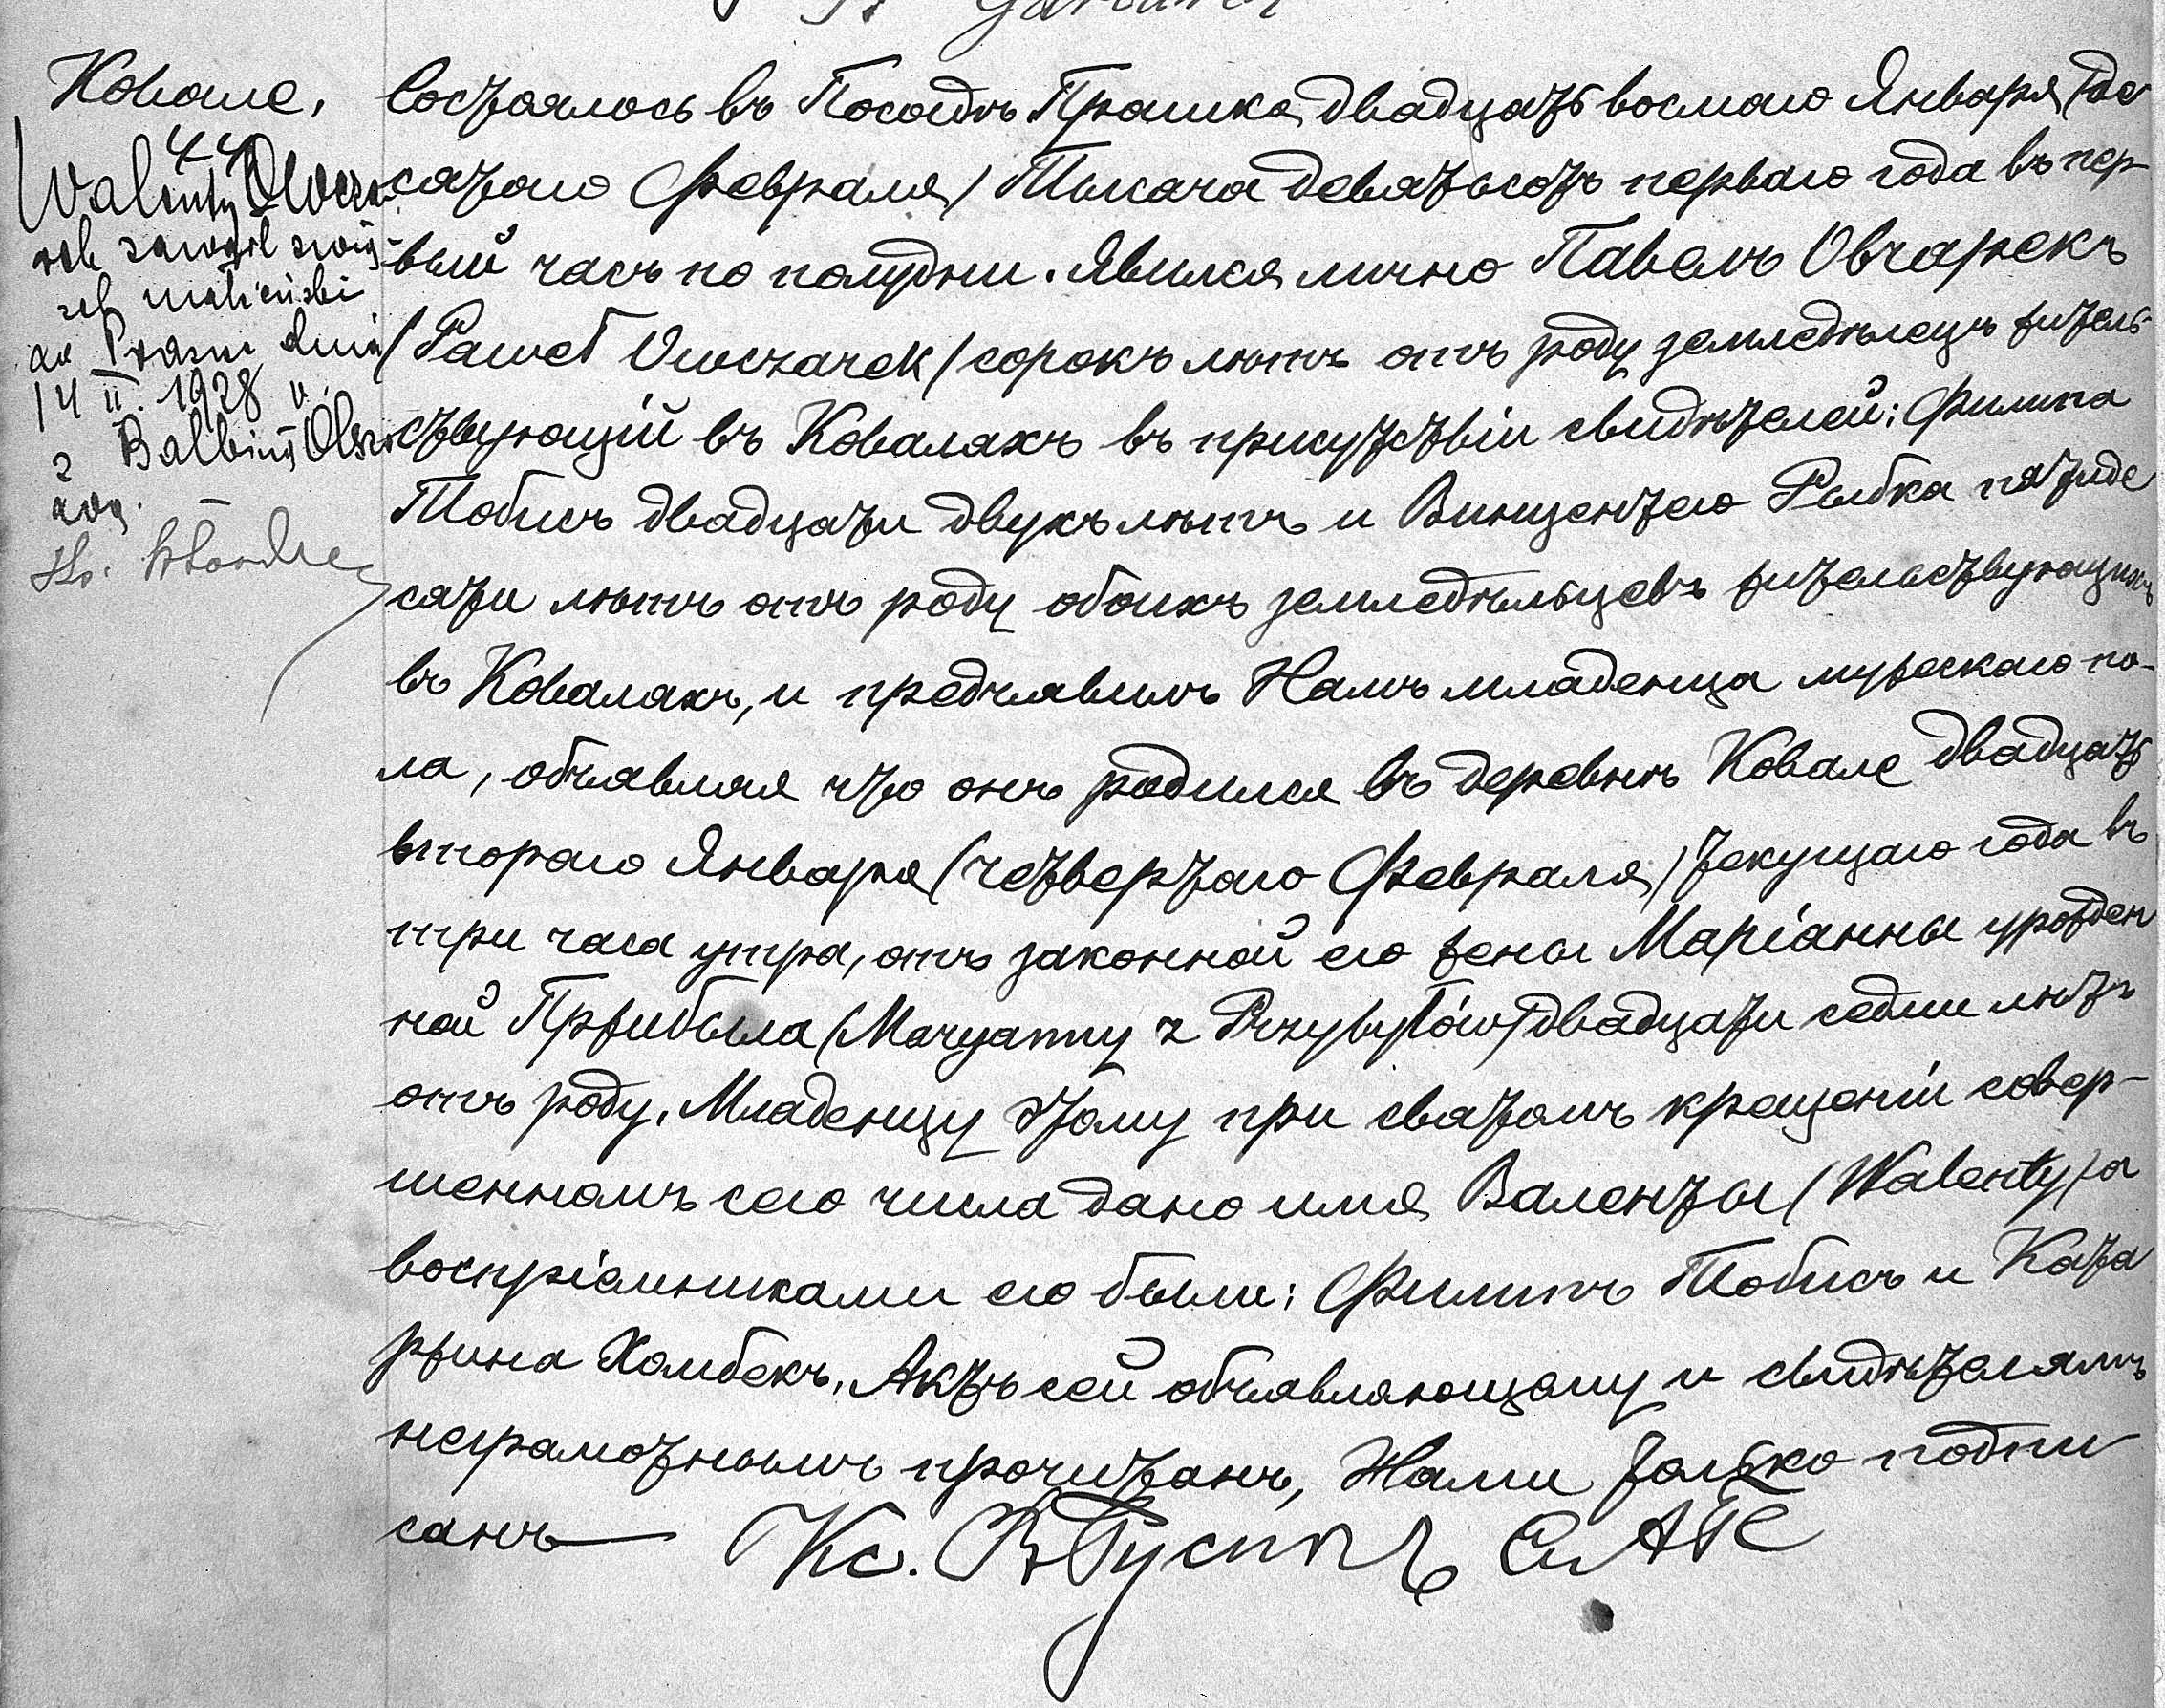 Ковале,
44
Walenty Owcza-
rek zawarł zwią-
zek małżeński
dnia
14 II. 1928 r.
z Balbiną
Ks.
состоялось въ Посадѣ Прашка двадцать восьмаго Января (де
сятаго Февраля) Тысяча девятьсотъ перваго года въ пер-
вый часъ по полудни. Явился лично Павелъ Овчарекъ
(Paweł Owczarek) сорокъ лѣтъ отъ роду земледѣлецъ житель-
ствующій въ Коваляхъ въ присутствіи свидѣтелей: Филипа
Тобисъ двадцати двухъ лѣтъ и Винцентего Рыбка пятиде
сяти лѣтъ отъ роду обоихъ земледѣльцевъ жительствующихъ
въ Коваляхъ, и предъявилъ Намъ младенца мужескаго по-
ла, объявляя что онъ родился въ деревнѣ Ковале двадцать
втораго Января (четвертаго Февраля) текущаго года въ
три часа утра, отъ законной его жены Маріанны урожден
ной Пржибыла (Maryanny z Przybyłów) двадцати седми лѣтъ
отъ роду. Младенцу этому при святомъ крещеніи совер-
шенномъ сего числа дано имя Валенты (Walenty) а
воспріемниками его были: Филипъ Тобисъ и Ката
ржина Хомбекъ. Актъ сей объявляющему и свидѣтелямъ
неграмотнымъ прочитанъ, Нами только подпи
санъ Кс.